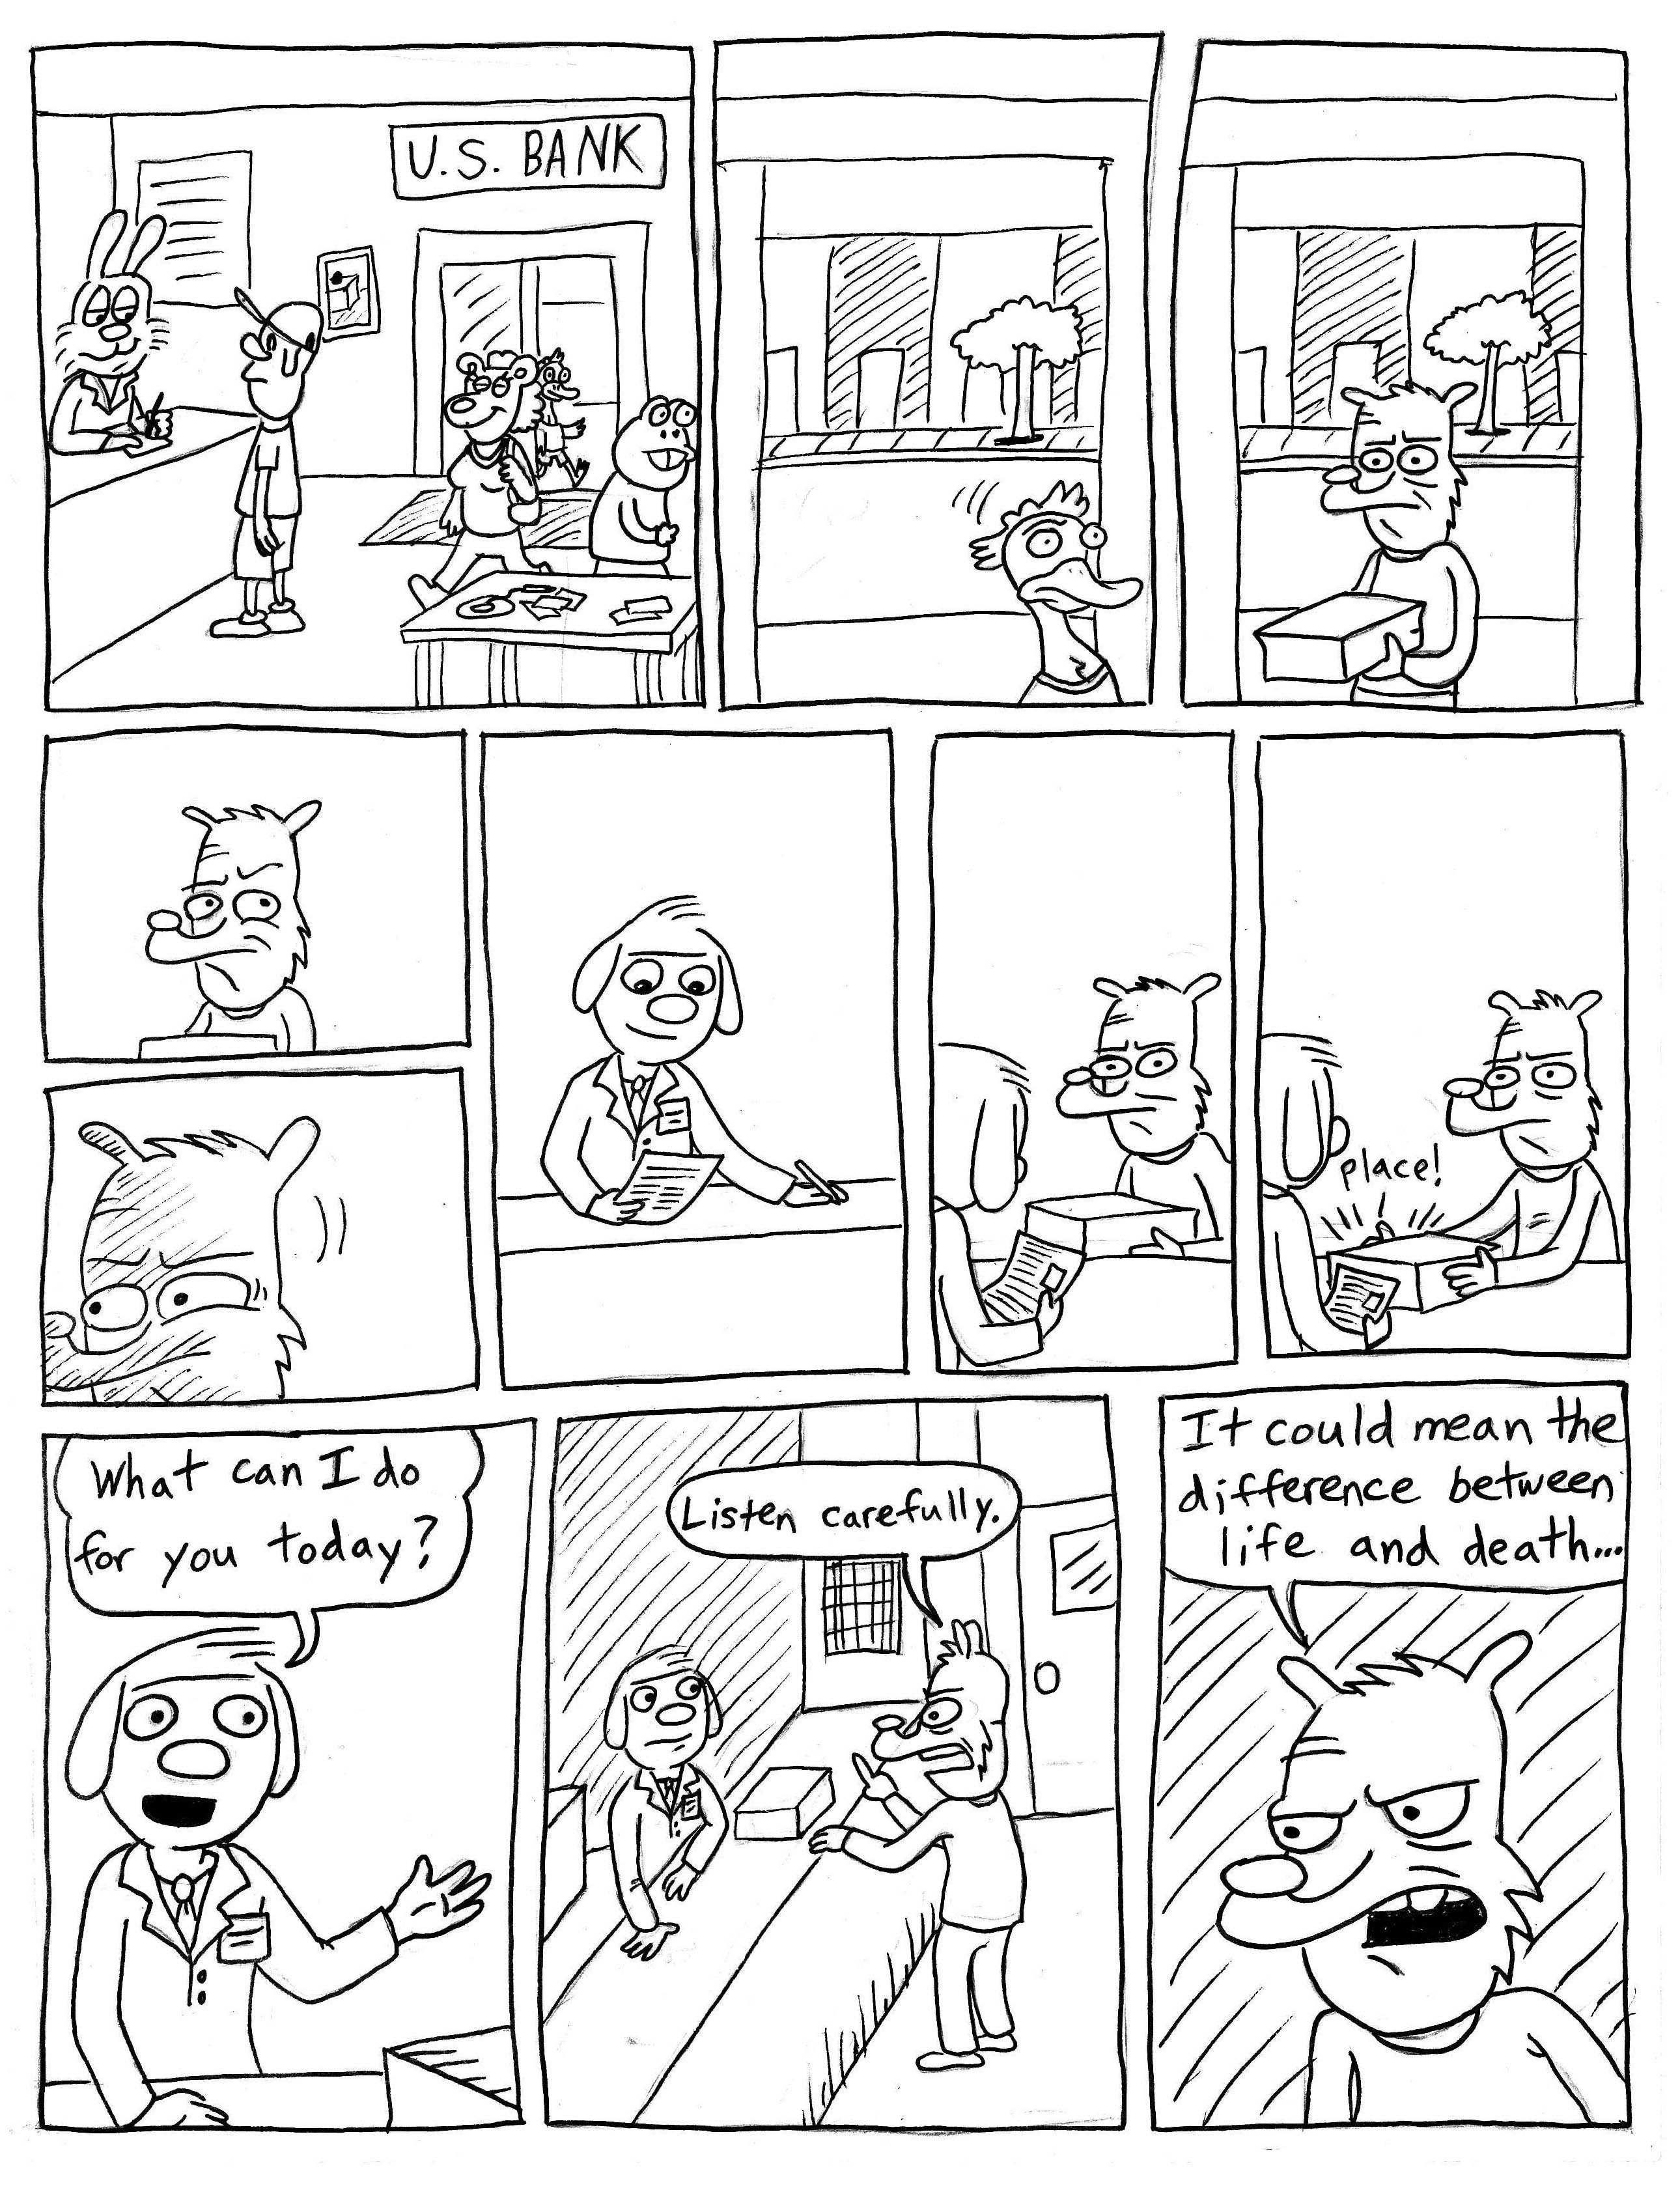 U.S. BANK
place!
What can I do
for you today?
Listen carefully.
It could mean the
difference between
life and death...